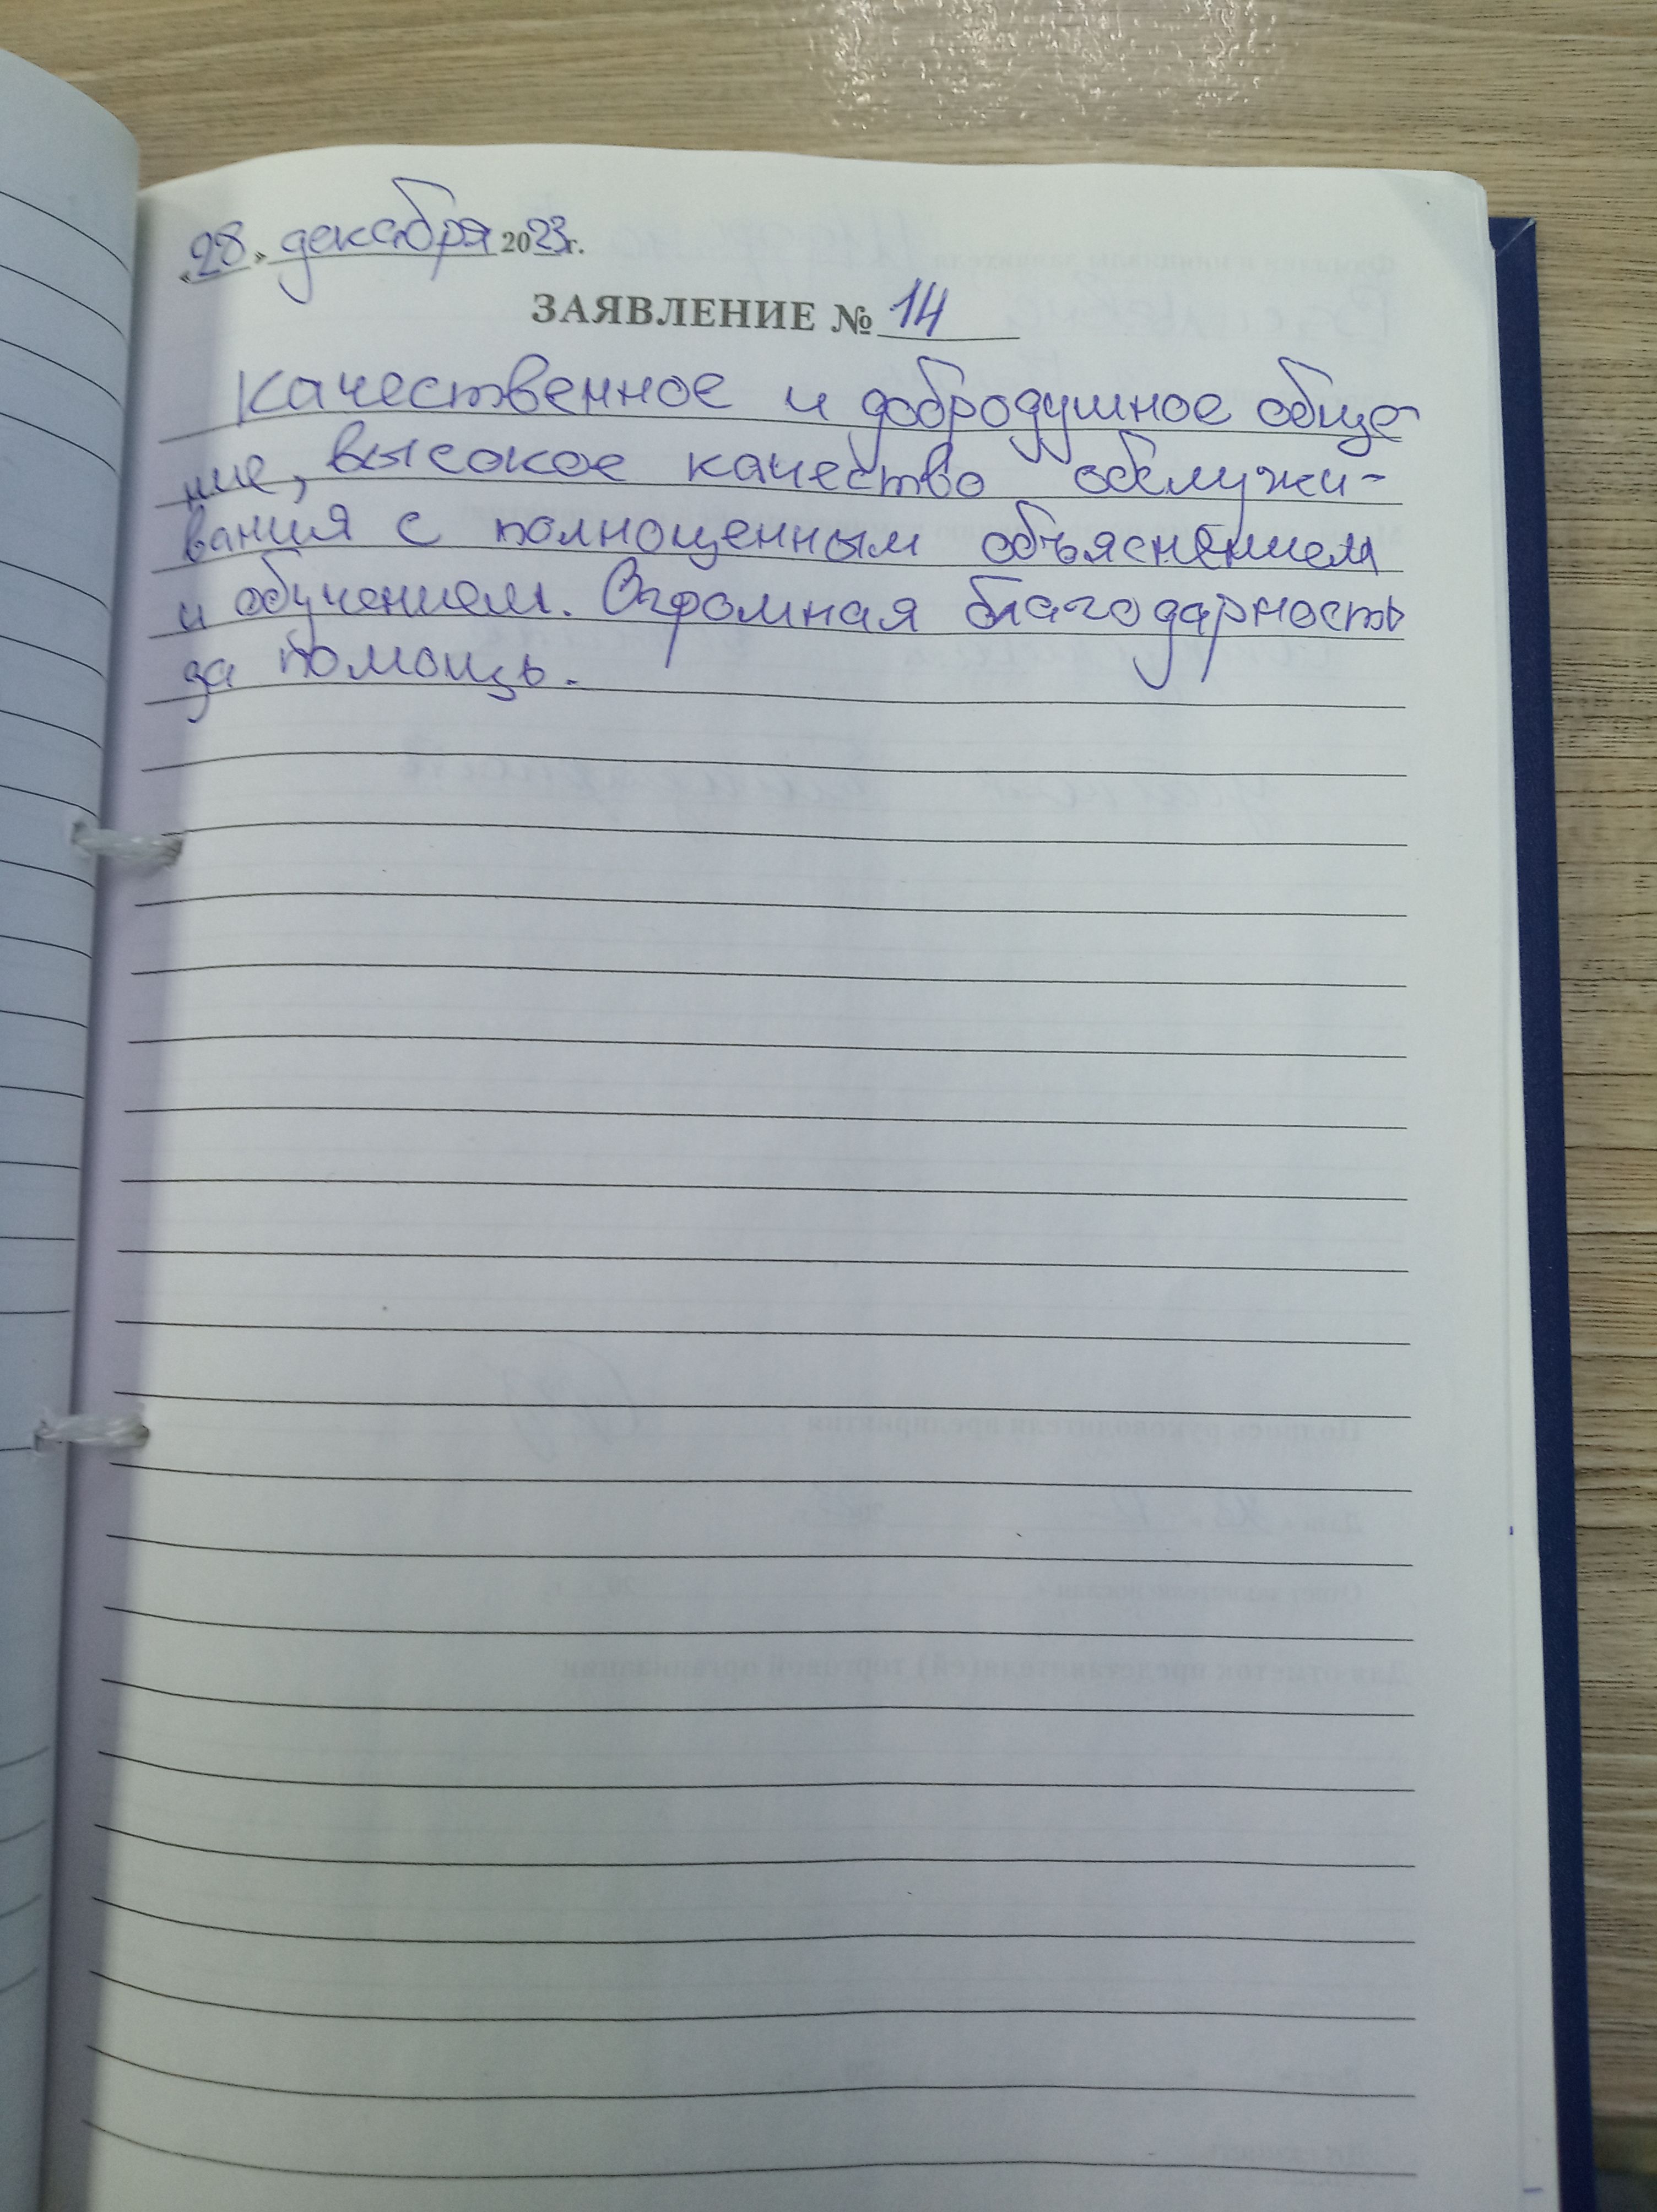 «28» декабря 2023г.
ЗАЯВЛЕНИЕ № 14
Качественное и добродушное обще-
ние, высокое качество обслужи-
вания с полноценным объяснением
и обучением. Огромная благодарность
за помощь.